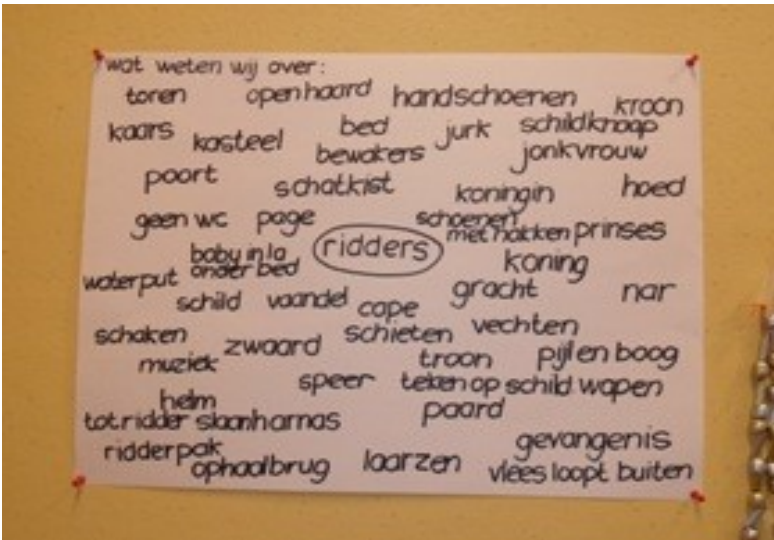 wat weten wij over:
toren open haard handschoenen kroon
kaars kasteel bed jurk schildknaap
bewakers jonkvrouw
poort schatkist koningin hoed
geen wc page schoenen met hakken prinses
baby in la onder bed ridders koning
waterput gracht nar
schild vaandel cape
schaken zwaard schieten vechten
muziek troon pijl en boog
speer teken op schild wapen
helm paard
tot ridder slaan harnas
ridderpak gevangenis
ophaalbrug laarzen vlees loopt buiten